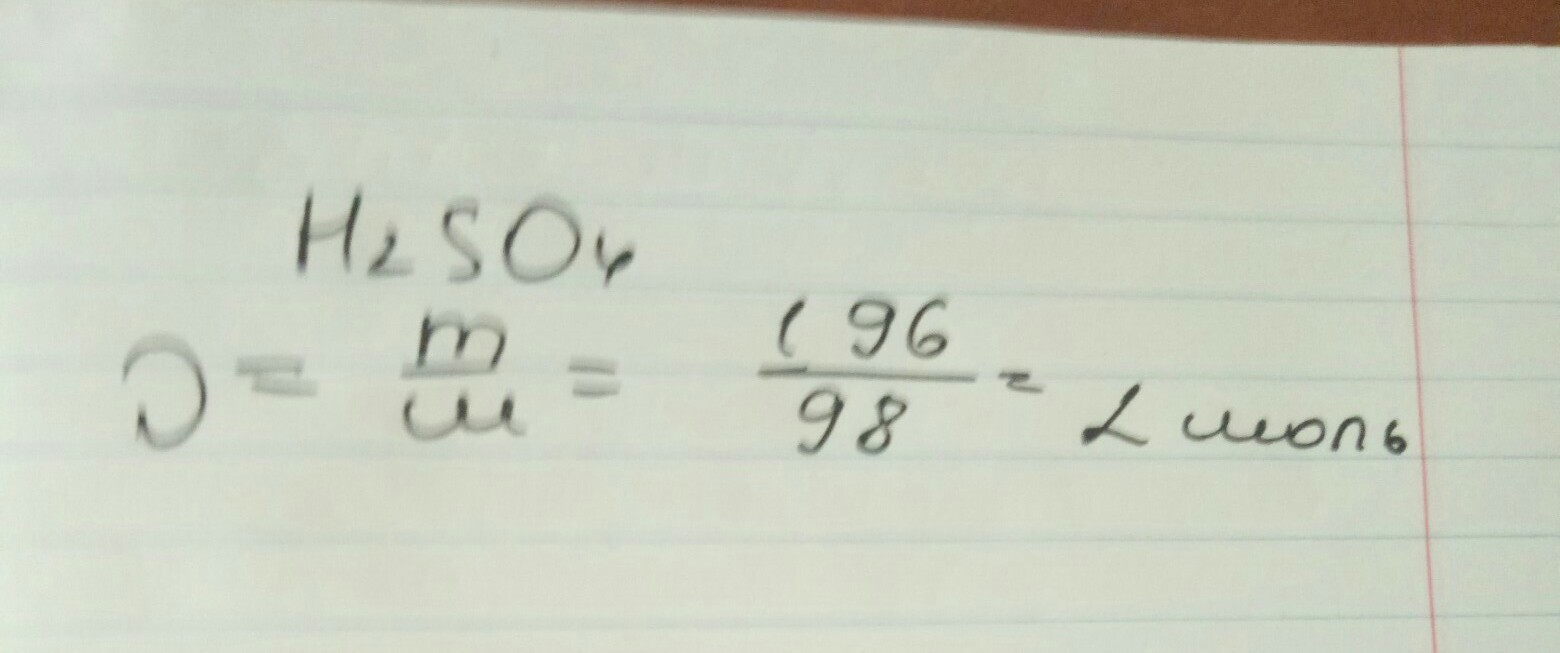 H₂SO₄
υ = m/м = 196/98 = 2 моль